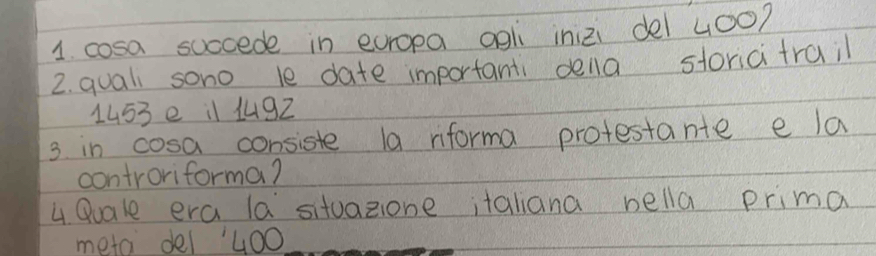 1. cosa succede in europa agli inizi del 400?
2. quali sono le date importanti della storia tra il
1453 e il 1492
3. in cosa consiste la riforma protestante e la
controriforma?
4 Quale era la situazione italiana nella prima
metà del '400